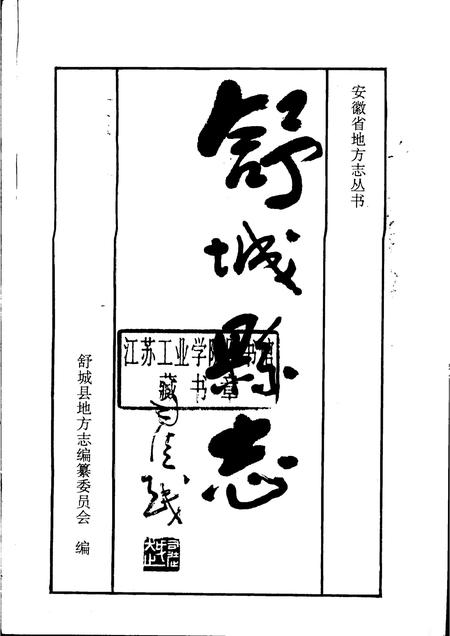 安徽省地方志丛书
舒城縣志
江苏工业学院图书馆
藏书章
舒城县地方志编纂委员会 编